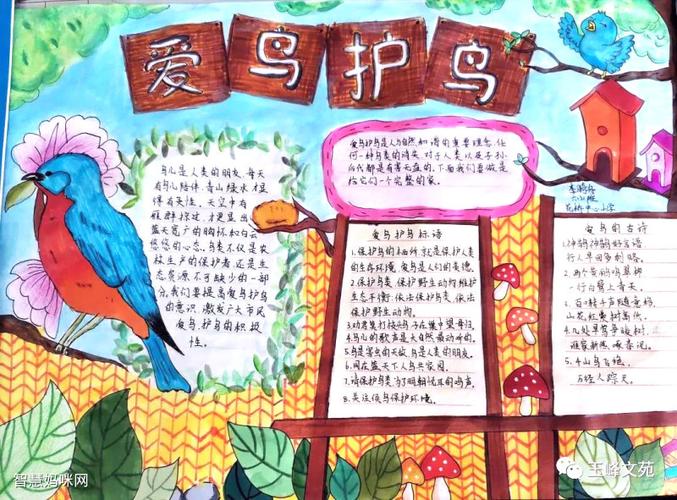 爱鸟护鸟
鸟儿是人类的朋友,每天
有鸟儿陪伴,青山绿水才显
得有灵性。天空中有
雁群掠过,才更显出
蓝天宽广的胸怀和白云
悠悠的心态。鸟类不仅是农
林生产的保护者,还是生
态资源不可缺少的一部
分。我们要提高爱鸟护鸟
的意识,激发广大市民
爱鸟,护鸟的积极
性。
爱鸟护鸟是人与自然和谐的重要理念,任
何一种鸟类的消失,对于人类以及子孙
后代都是有害无益的,下面我们要做是
给它们一个完整的家。
中心小学
爱鸟护鸟标语
1.保护鸟的栖所就是保护人类
的生存环境,爱鸟是人们的美德。
2.保护鸟类保护野生动物维护
生态平衡,依法保护鸟类,依法
保护野生动物。
3.劝君莫打枝头鸟子在巢中望母归。
4.鸟儿的歌声是大自然最动听的。
5.鸟是害虫的天敌,鸟是人类的朋友。
6.同在蓝天下人鸟共家园。
7.请保护鸟类为了明朝悦耳的鸣声。
8.关注候鸟保护环境。
爱鸟的古诗
行人早回多利赂。
2.两个黄鹂鸣翠柳
一行白鹭上青天。
3.百啭千声随意移
山花红紫树高低。
4.几处早莺争暖树,
谁家新燕啄春泥。
5.千山鸟飞绝,
万径人踪灭。
智慧妈咪网
玉峰文苑